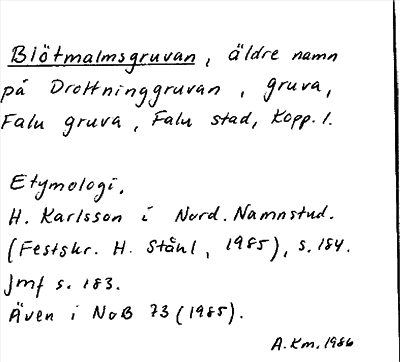 Blötmalmsgruvan, äldre namn
på Drottninggruvan, gruva,
Falu gruva, Falu stad, Kopp. l.
Etymologi.
H. Karlsson i Nord. Namnstud.
(Festskr. H. Ståhl, 1985), s. 184.
Jmf s. 183.
Även i NoB 73 (1985).
A.Km. 1986